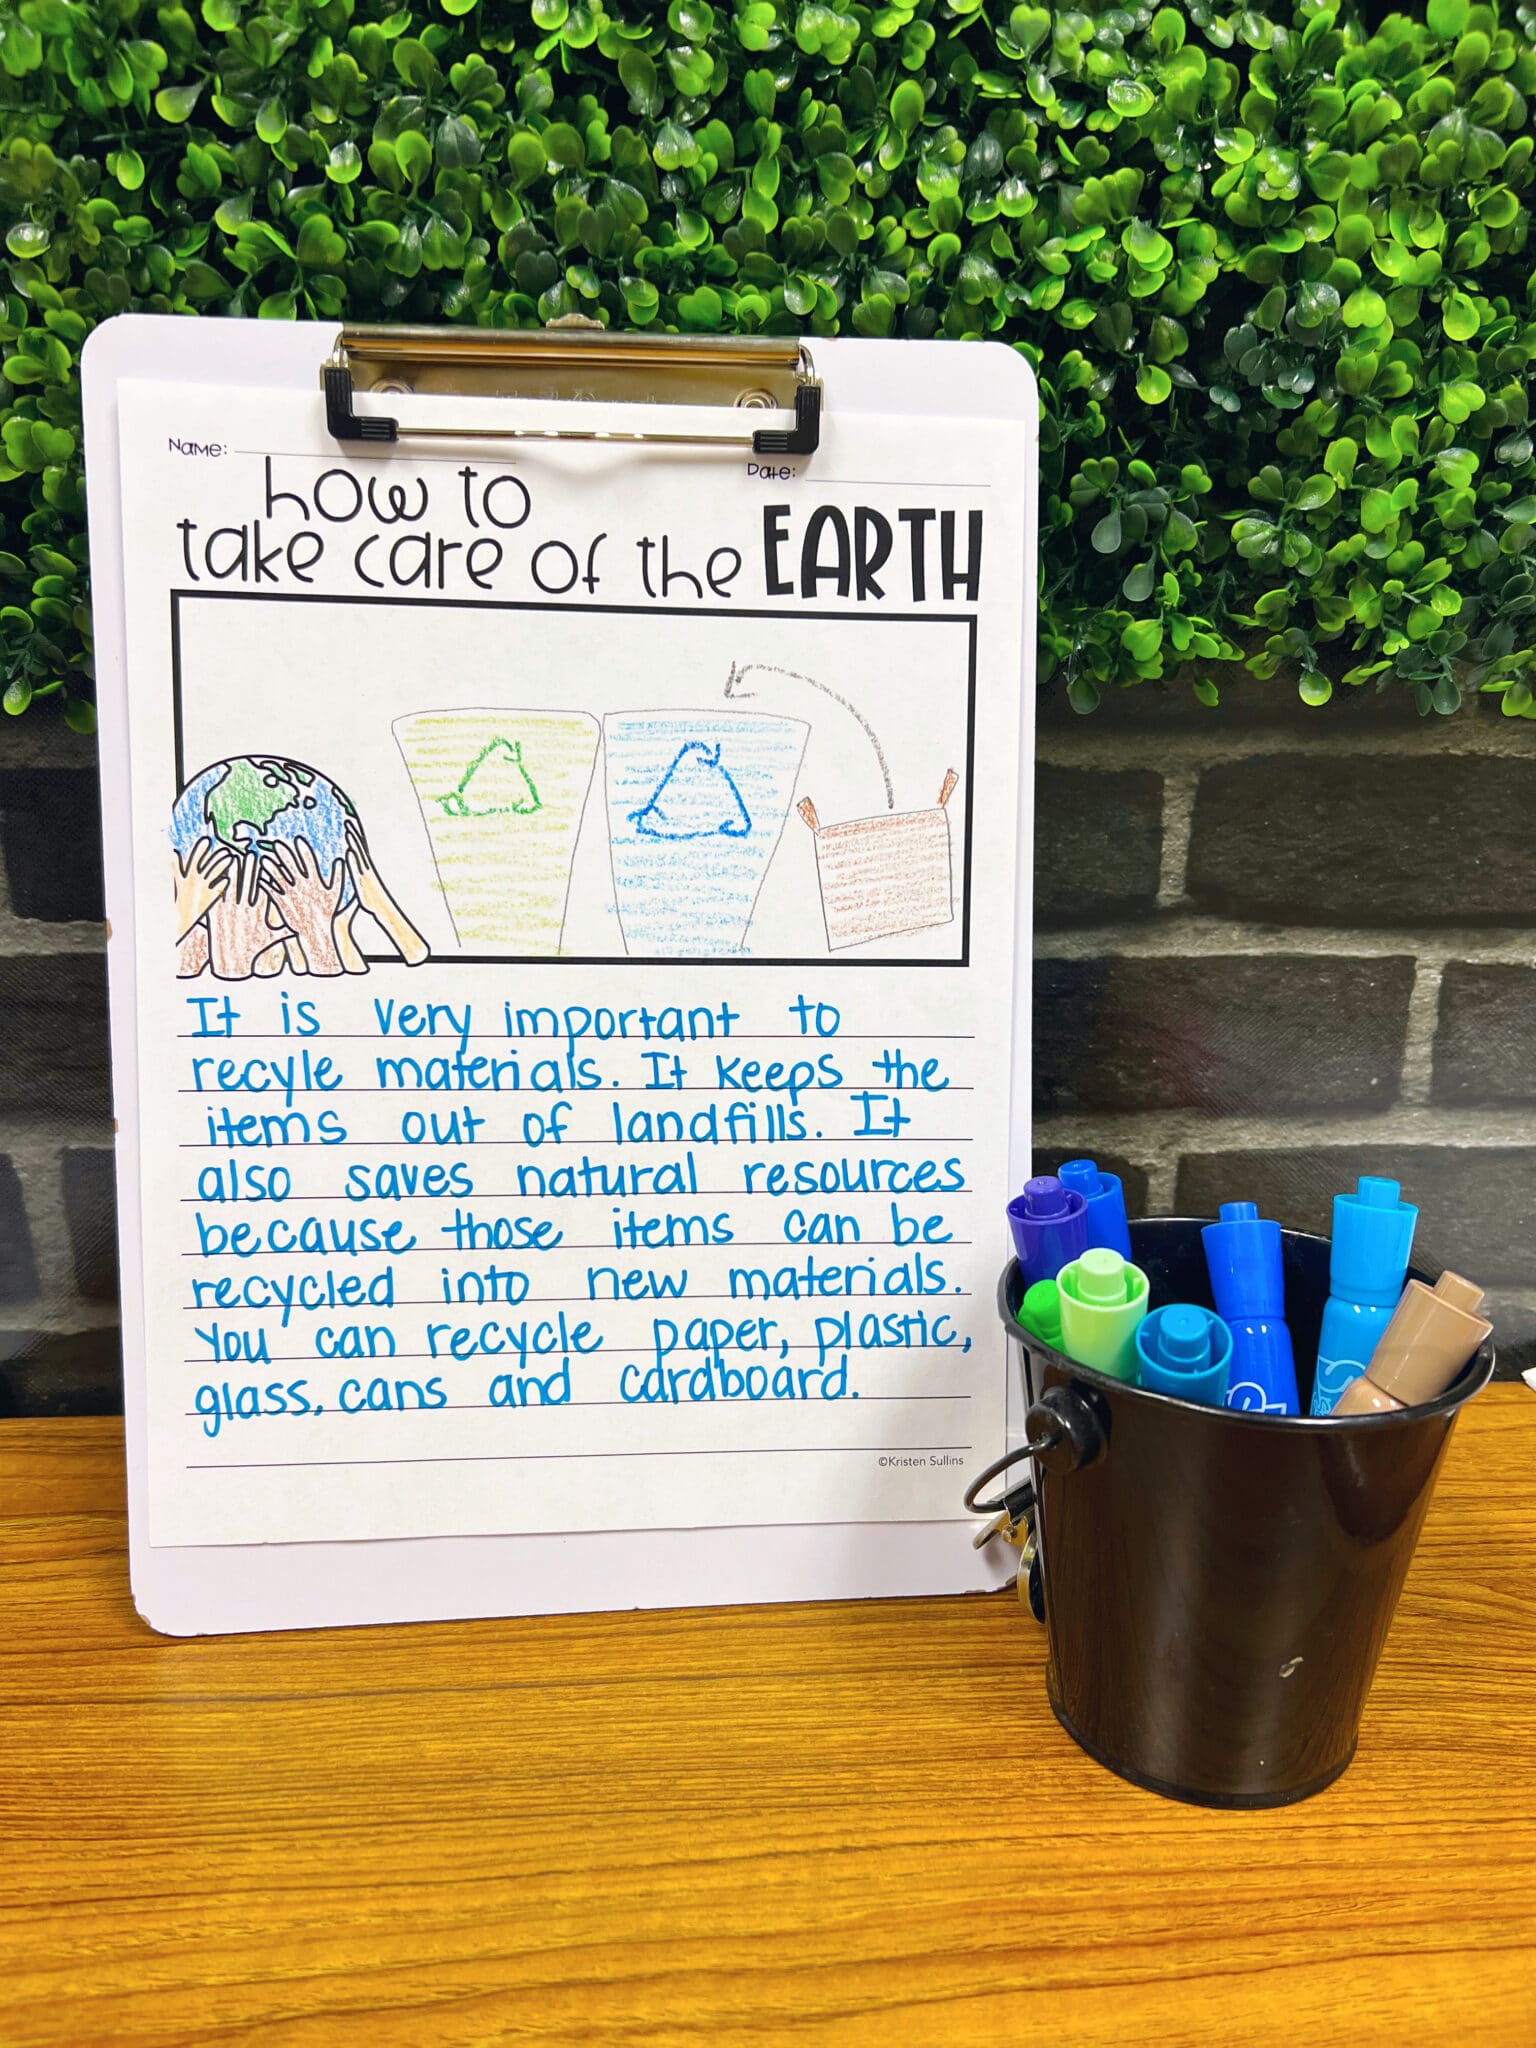 Name:
Date:
how to
take care of the EARTH
It is very important to
recyle materials. It keeps the
items out of landfills. It
also saves natural resources
because those items can be
recycled into new materials.
You can recycle paper, plastic,
glass, cans and cardboard.
©Kristen Sullins